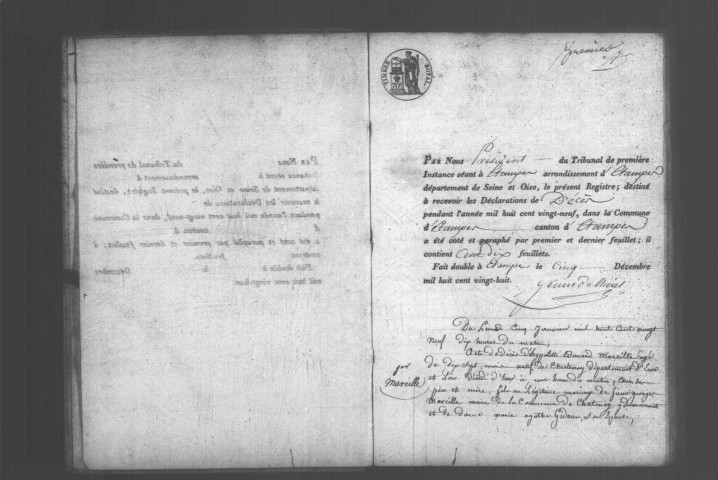 premier
TIMBRE ROYAL
PAR Nous Président du Tribunal de première
Instance séant à Etampes arrondissement d'Etampes
département de Seine et Oise, le présent Registre; destiné
à recevoir les Déclarations de Décès
pendant l'année mil huit cent vingt-neuf, dans la Commune
d'Etampes canton d'Etampes
a été coté et paraphé par premier et dernier feuillet; il
contient Cent dix feuillets.
Fait double à Etampes le Cinq Décembre
mil huit cent vingt-huit.
Du Lundi Cinq Janvier mil huit cent vingt
neuf dix heures du matin;
Acte de décès d'hyppolitte Edouard Marville agé
de dix sept mois natif de département d'Eure
et Loir Décédé d'hier à une heure du matin, chez ses
père et mère, fils en légitime mariage de
Marville maire de la Commune de Chatenay y demeurant
et de dame marie agathe son épouse,
1er
Marville